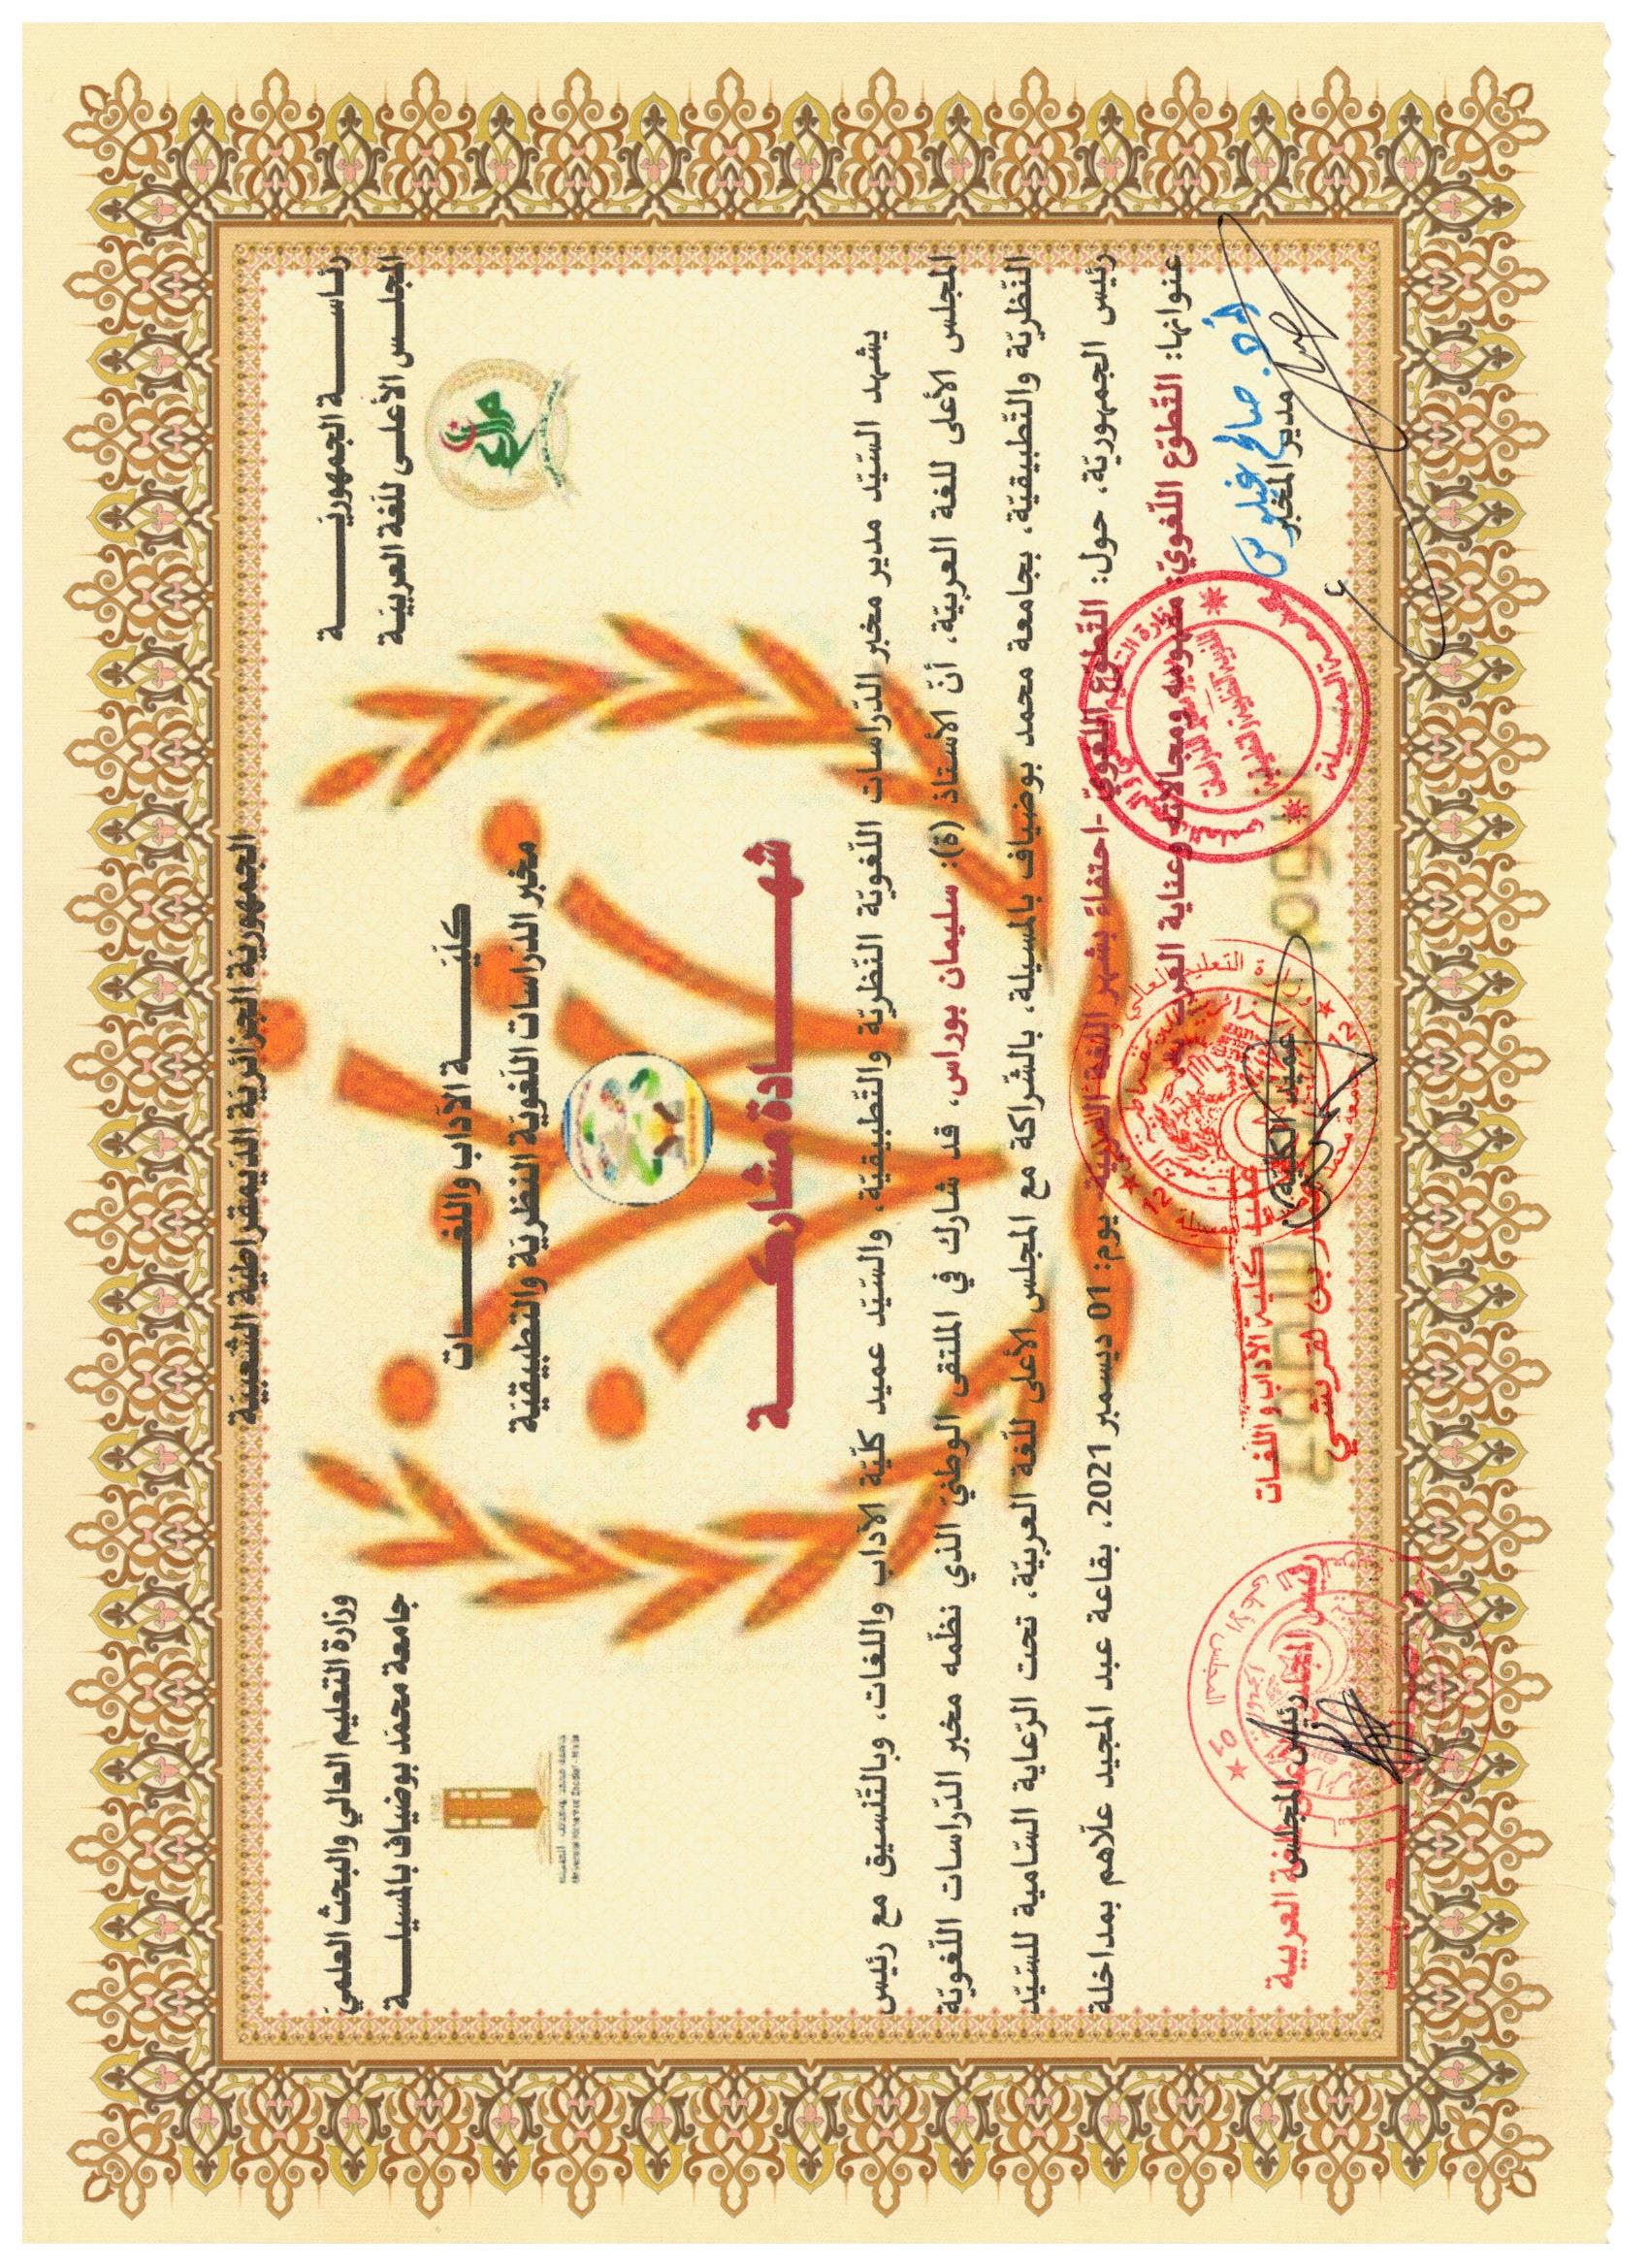 الجمهورية الجزائرية الديمقراطية الشعبية
رئاسة الجمهورية
المجلس الأعلى للغة العربية
وزارة التعليم العالي والبحث العلمي
جامعة محمد بوضياف بالمسيلة
كليّة الآداب واللغات
مخبر الدراسات اللغوية النظرية والتطبيقية
شهادة مشاركة
يشهد السّيّد مدير مخبر الدّراسات اللّغويّة النّظريّة والتّطبيقيّة، والسّيّد عميد كلّيّة الآداب واللغات، وبالتّنسيق مع رئيس
المجلس الأعلى للغة العربيّة، أنّ الأستاذ (ة): سليمان بوراس، قد شارك في الملتقى الوطنيّ الذي نظّمه مخبر الدّراسات اللّغويّة
النّظريّة والتّطبيقيّة، بجامعة محمد بوضياف بالمسيلة، بالشّراكة مع المجلس الأعلى للّغة العربيّة، تحت الرّعاية السّامية للسّيّد
رئيس الجمهوريّة، حول: التّطوّع اللّغويّ -احتفاءً بشهر اللغة العربية- يوم: 01 ديسمبر 2021، بقاعة عبد المجيد علّاهم بمداخلة
عنوانها: التّطوّع اللّغويّ: مفهومه ومجالاته وعناية العربية به
أ.د. صالح غيلوس
مدير المخبر
عميد الكلية
عميد كلية الآداب واللغات
عمار بن لقريشي
رئيس المجلس
رئيس المجلس الأعلى للغة العربية